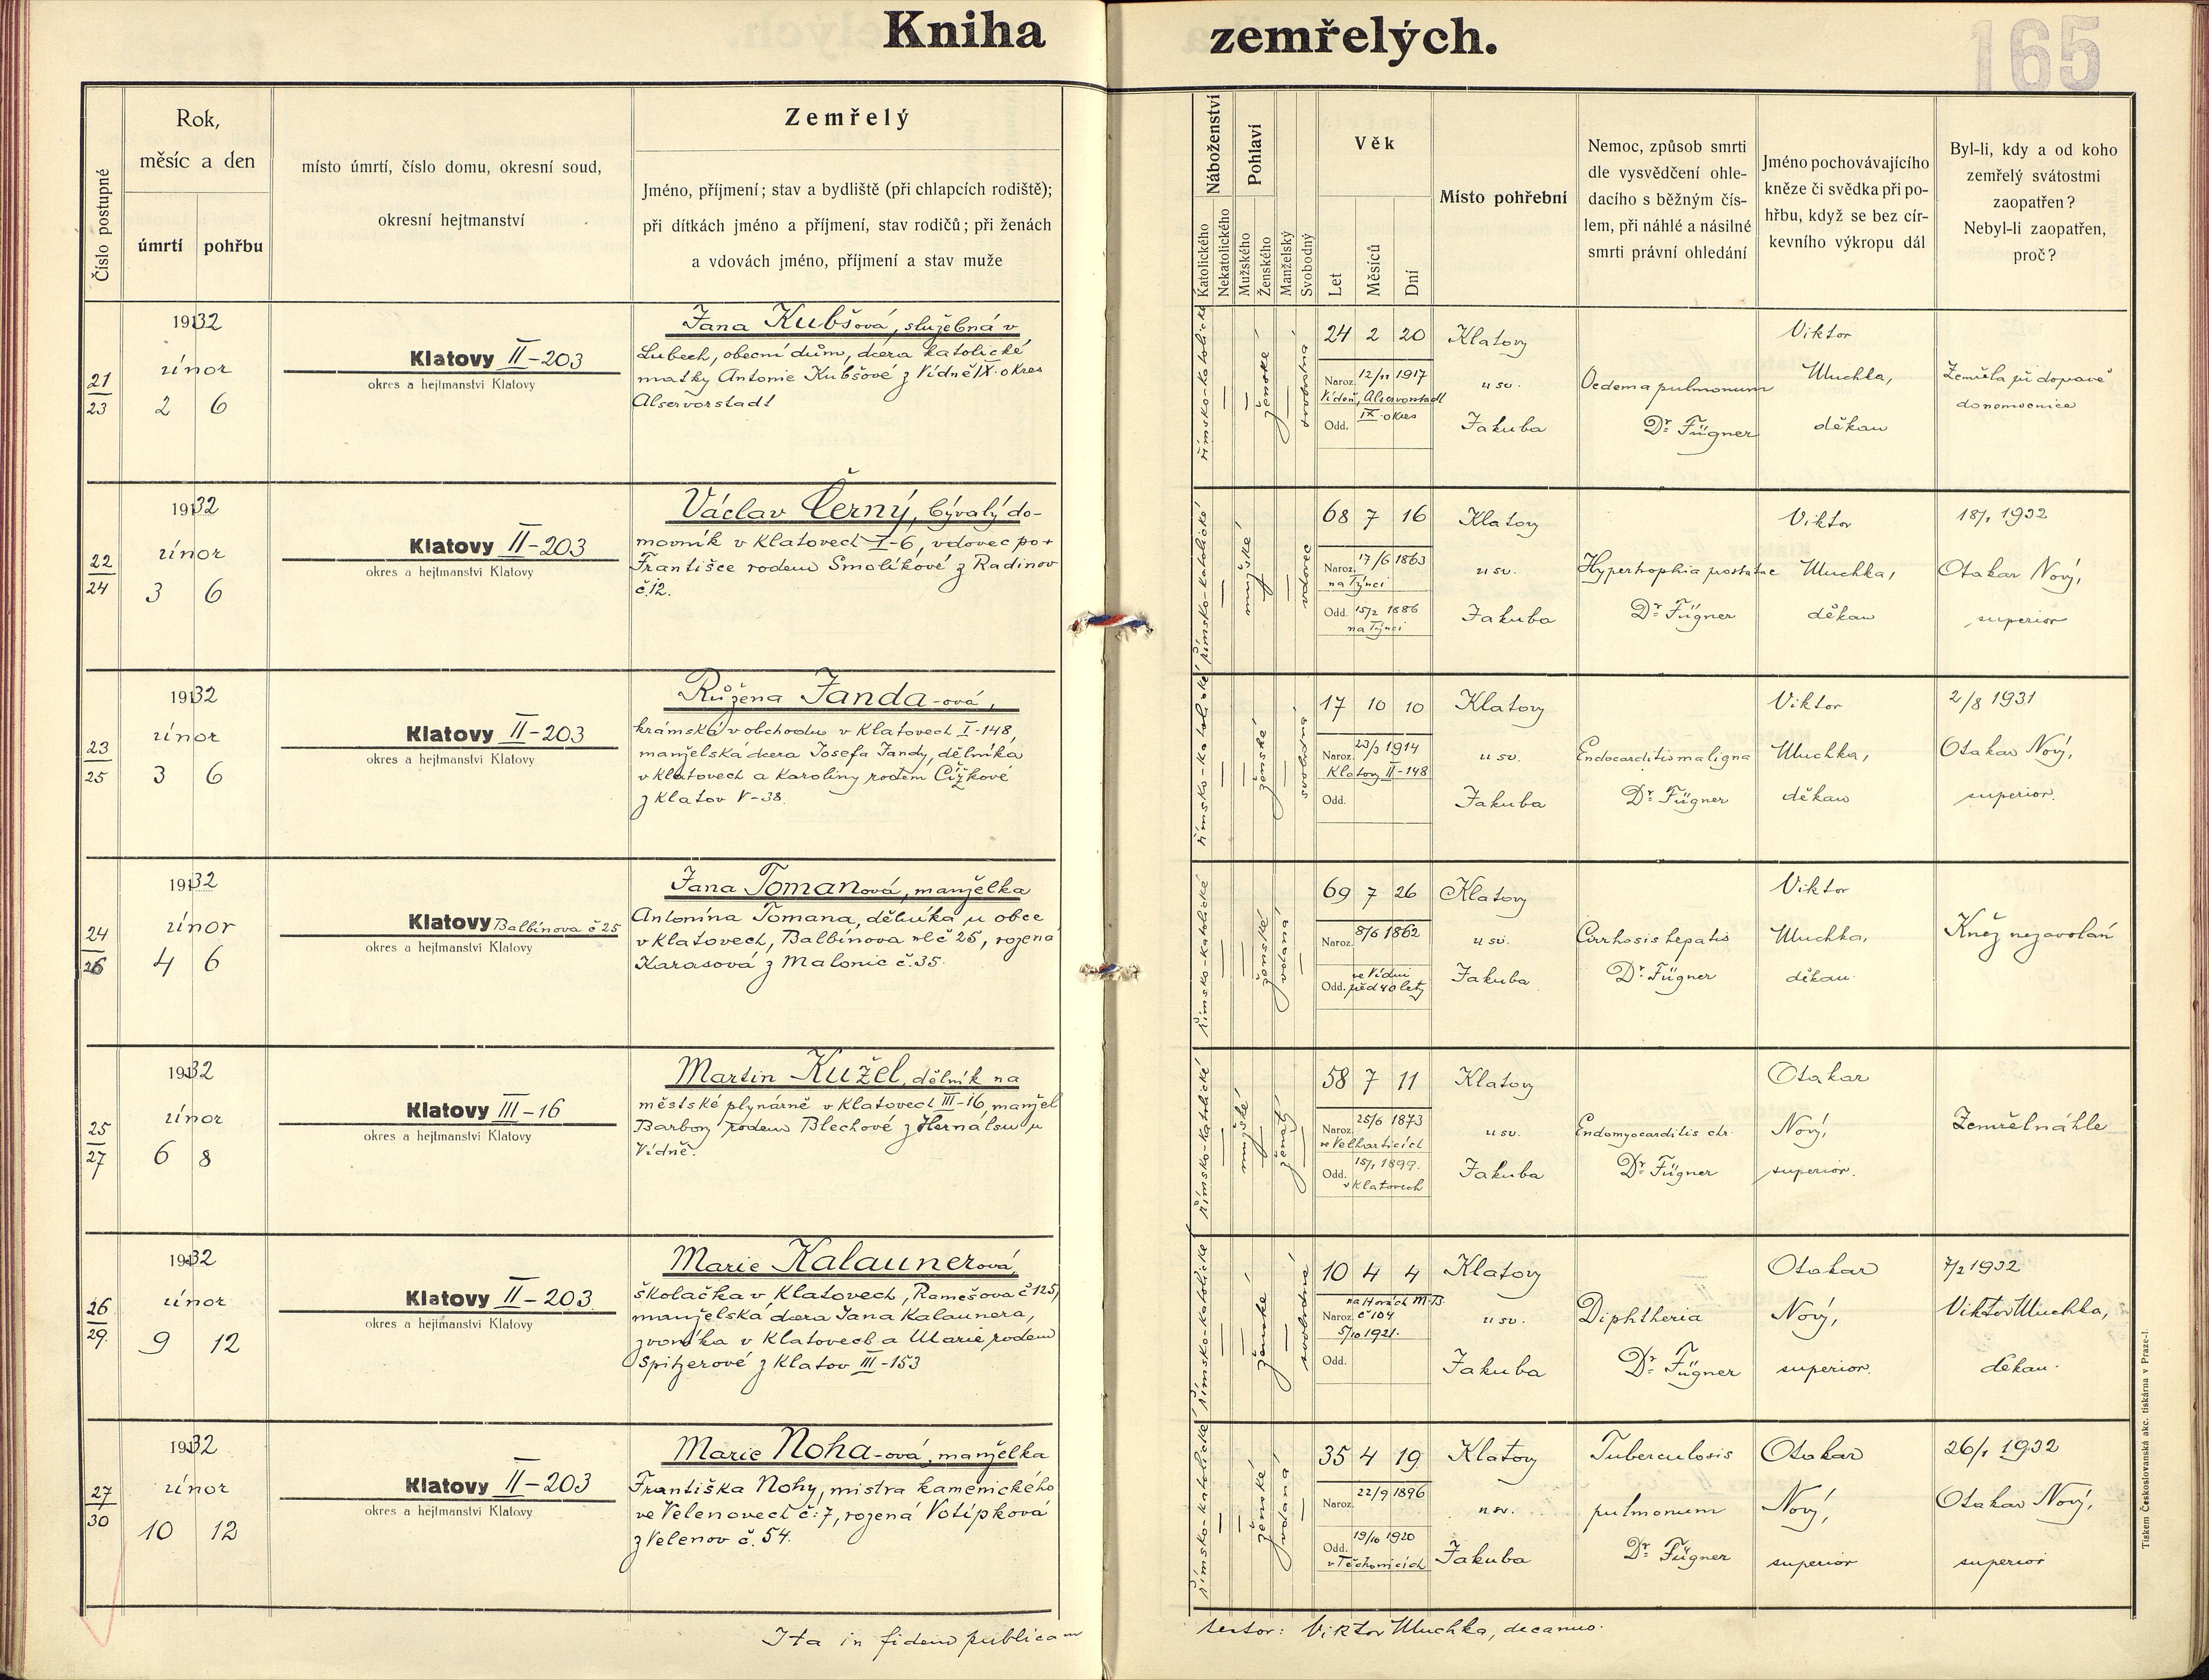 Kniha zemřelých.
165
Číslo postupné
Rok,
měsíc a den
úmrtí
pohřbu
místo úmrtí, číslo domu, okresní soud,
okresní hejtmanství
Zemřelý
Jméno, příjmení; stav a bydliště (při chlapcích rodiště);
při dítkách jméno a příjmení, stav rodičů; při ženách
a vdovách jméno, příjmení a stav muže
Náboženství
Katolického
Nekatolického
Pohlaví
Mužského
Ženského
Manželský
Svobodný
Věk
Let
Měsíců
Dní
Místo pohřební
Nemoc, způsob smrti
dle vysvědčení ohle-
dacího s běžným čís-
lem, při náhlé a násilné
smrti právní ohledání
Jméno pochovávajícího
kněze či svědka při po-
hřbu, když se bez cír-
kevního výkropu dál
Byl-li, kdy a od koho
zemřelý svátostmi
zaopatřen?
Nebyl-li zaopatřen,
proč?
21
23
1932
únor
2 6
Klatovy II-203
okres a hejtmanství Klatovy
Jana Kubšová, služebná v
Lubech, obecní dům, dcera katolické
matky Antonie Kubšové z Vídně IX. okres
Alservorstadt
římsko-katolické
ženské
svobodná
24 2 20
Naroz. 12/11 1917
Vídeň, Alservorstadt
IX. okres
Odd.
Klatovy
u sv.
Jakuba
Oedema pulmonum
Dr. Fügner
Viktor
Muchka,
děkan
Zemřela při dopravě
do nemocnice
22
24
1932
únor
3 6
Klatovy II-203
okres a hejtmanství Klatovy
Václav Černý, bývalý do-
movník v Klatovech I-6, vdovec po +
Františce rodem Smolíkové z Radinov
č.12.
římsko-katolické
mužské
vdovec
68 7 16
Naroz. 17/6 1863
na Týnci
Odd. 15/2 1886
na Týnci
Klatovy
u sv.
Jakuba
Hyperhophia postatae
Dr. Fügner
Viktor
Muchka,
děkan
18/1 1932
Otakar Nový,
superior
23
25
1932
únor
3 6
Klatovy II-203
okres a hejtmanství Klatovy
Růžena Janda-ová,
krámská v obchodu v Klatovech I-148,
manželská dcera Josefa Jandy, dělníka
v Klatovech a Karoliny rodem Čížkové
z Klatov V-38.
římsko-katolické
ženské
svobodná
17 10 10
Naroz. 23/3 1914
Klatovy II-148
Odd.
Klatovy
u sv.
Jakuba
Endocarditis maligna
Dr. Fügner
Viktor
Muchka,
děkan
2/8 1931
Otakar Nový,
superior.
24
26
1932
únor
4 6
Klatovy Balbínova č 25
okres a hejtmanství Klatovy
Jana Tomanová, manželka
Antonína Tomana, dělníka u obce
v Klatovech, Balbínova ul č 25, rozená
Karasová z Malonic č.35.
římsko-katolické
ženské
vdaná
69 7 26
Naroz. 8/6 1862
ve Vídni
Odd. před 40 lety
Klatovy
u sv.
Jakuba
Cirrhosis hepatis
Dr. Fügner
Viktor
Muchka,
děkan.
Kněz nezavolán
25
27
1932
únor
6 8
Klatovy III-16
okres a hejtmanství Klatovy
Martin Kužel, dělník na
městské plynárně v Klatovech III-16, manžel
Barbory rodem Blechové z Hernalsu u
Vídně.
římsko-katolické
mužské
ženatý
58 7 11
Naroz. 25/6 1873
ve Velharticích
Odd. 15/1 1899.
v Klatovech
Klatovy
u sv.
Jakuba
Endomyocarditis chr.
Dr. Fügner
Otakar
Nový,
superior.
Zemřel náhle
26
29.
1932
únor
9 12
Klatovy II-203
okres a hejtmanství Klatovy
Marie Kalaunerová,
školačka v Klatovech, Ramešova č 125,
manželská dcera Jana Kalaunera,
zvoníka v Klatovech a Marie rodem
Spitzerové z Klatov III-153
římsko-katolické
ženské
svobodné
10 4 4
na Horách M.B.
Naroz. č 104
5/10 1921.
Odd.
Klatovy
u sv.
Jakuba
Diphtheria
Dr. Fügner
Otakar
Nový,
superior.
7/2 1932
Viktor Muchka,
děkan.
27
30
1932
únor
10 12
Klatovy II-203
okres a hejtmanství Klatovy
Marie Noha-ová, manželka
Františka Nohy, mistra kamenického
ve Velenovech č: 7, rozená Votípková
z Velenov č. 54.
římsko-katolické
ženské
vdaná
35 4 19
Naroz. 22/9 1896
Odd. 19/10 1920
v Těchonicích
Klatovy
u sv.
Jakuba
Tuberculosis
pulmonum
Dr. Fügner
Otakar
Nový,
superior
26/1 1932
Otakar Nový,
superior
Ita in fidem publicam
testor: Viktor Muchka, decanus.
Tiskem Československá akc. tiskárna v Praze-I.